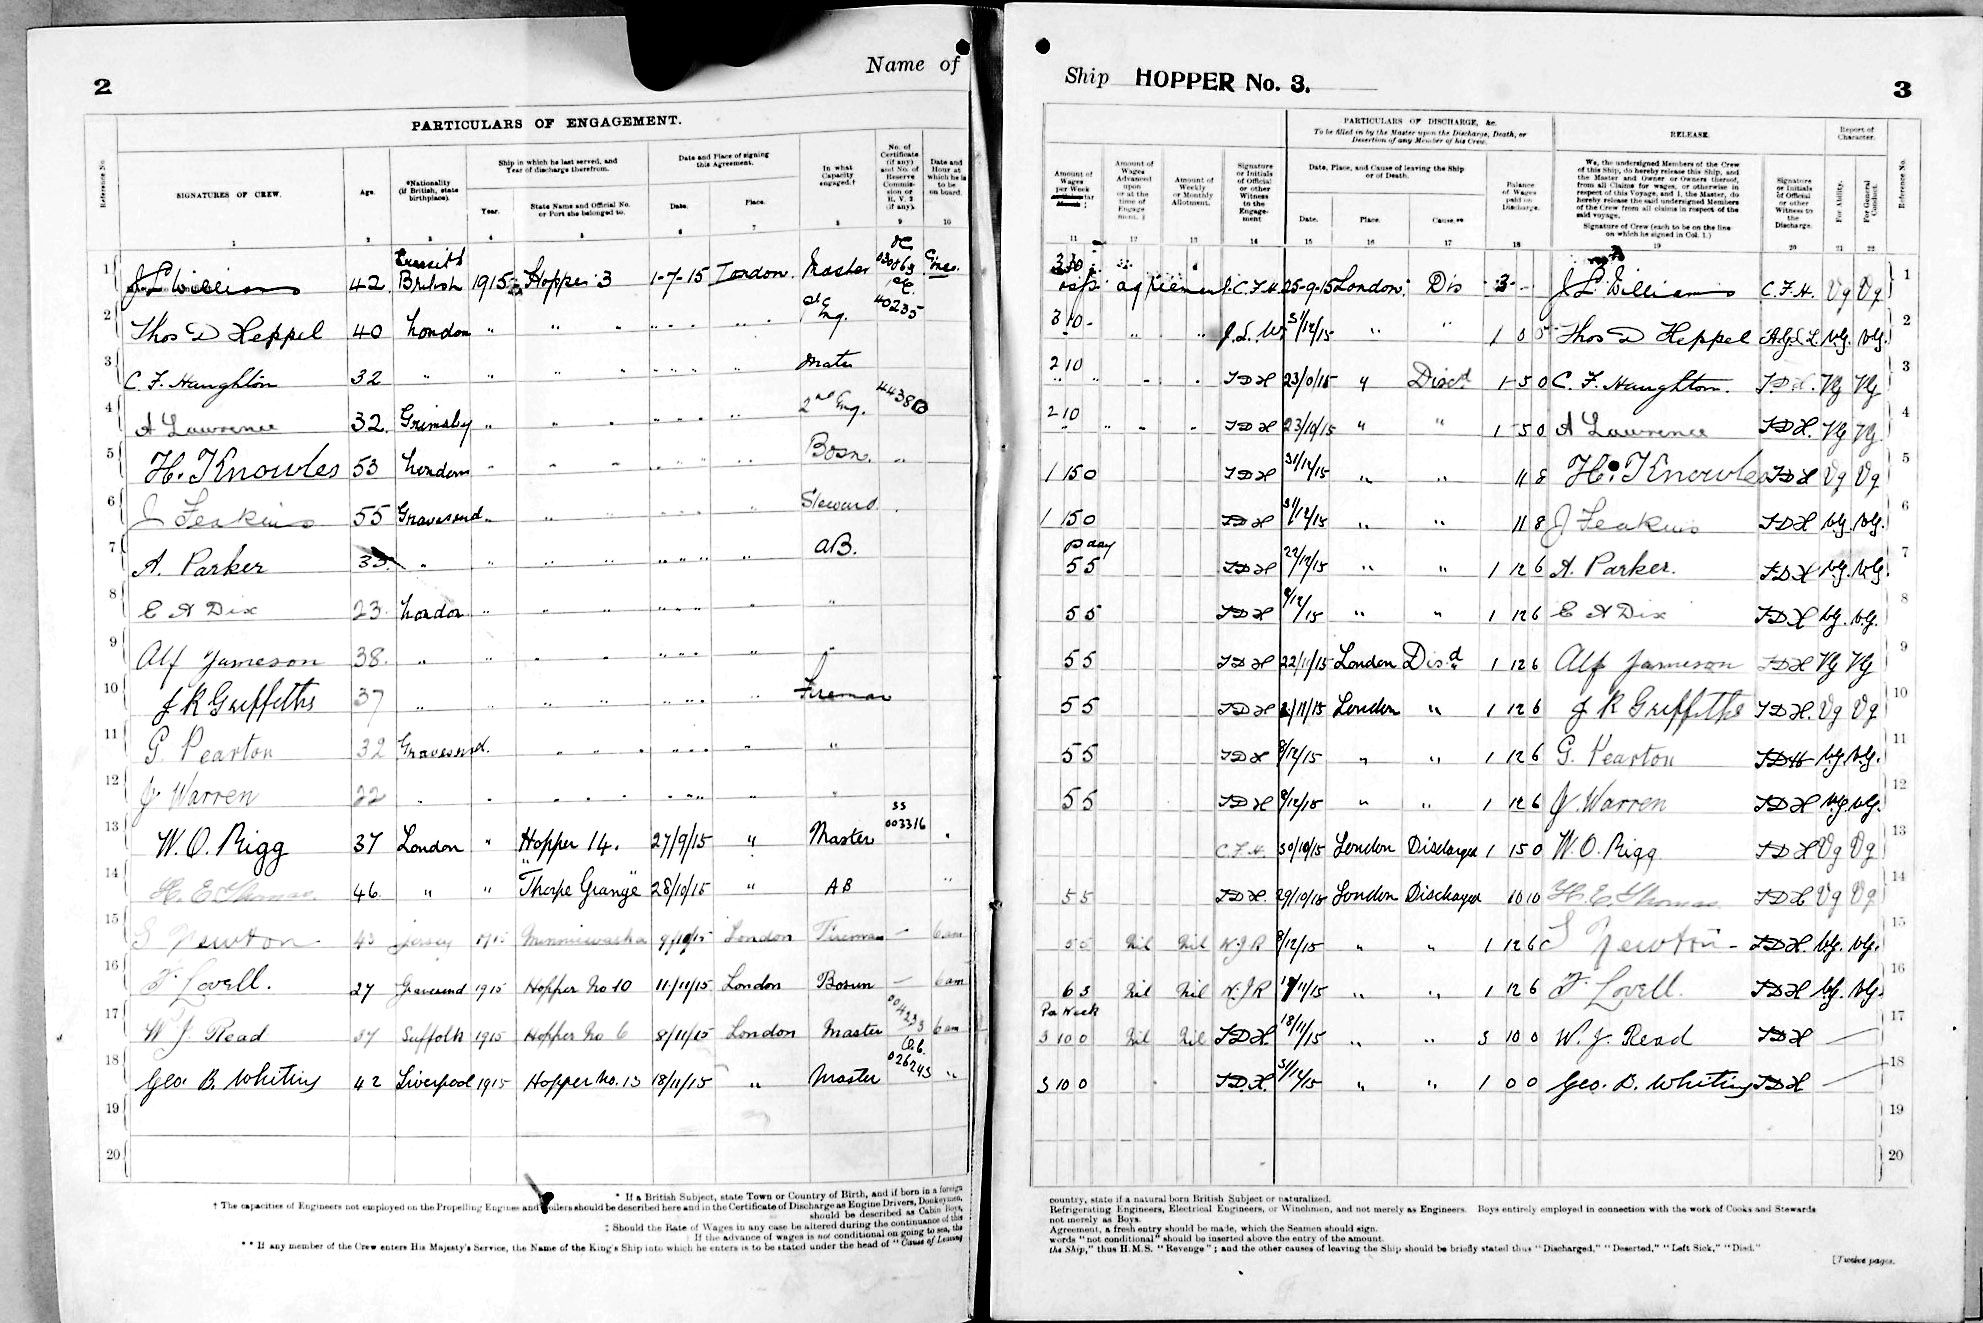 2
Name of
Ship HOPPER No. 3.
3
PARTICULARS OF ENGAGEMENT.
Reference No.
SIGNATURES OF CREW.
Age.
*Nationality (if British, state birthplace).
Ship in which he last served, and Year of discharge therefrom.
Year.
State Name and Official No. or Port she belonged to.
Date and Place of signing this Agreement.
Date.
Place.
In what Capacity engaged.†
No. of Certificate (if any) and No. of Reserve Commission or R. V. 2 (if any).
Date and Hour at which he is to be on board.
1 2 3 4 5 6 7 8 9 10
PARTICULARS OF DISCHARGE, &c.
To be filled in by the Master upon the Discharge, Death, or Desertion of any Member of his Crew.
Amount of Wages per Week
Amount of Wages Advanced upon or at the time of Engagement. ‡
Amount of Weekly or Monthly Allotment.
Signature or Initials of Official or other Witness to the Engagement
Date, Place, and Cause of leaving the Ship or of Death.
Date. Place. Cause.**
Balance of Wages paid on Discharge.
RELEASE.
We, the undersigned Members of the Crew of this Ship, do hereby release this Ship, and the Master and Owner or Owners thereof, from all Claims for wages, or otherwise in respect of this Voyage, and I, the Master, do hereby release the said undersigned Members of the Crew from all claims in respect of the said voyage.
Signature of Crew (each to be on the line on which he signed in Col. 1.)
Signature or Initials of Official or other Witness to the Discharge.
Report of Character.
For Ability.
For General Conduct.
Reference No.
11 12 13 14 15 16 17 18 19 20 21 22
1 J L Williams 42 British 1915 Hopper 3 1-7-15 London Master agreement C.F.H. 25-9-15 London Dis 3 J L Williams C.F.H. Vg Vg 1
2 Thos D Heppel 40 London " " " " " " Eng. 40235 3 10 - J.L.W. 31/12/15 " " 1 0 5 Thos D Heppel VG. VG. 2
3 C. F. Haughton 32 " " " " " " " Mate 2 10 TDH 23/10/15 " Discd 1 5 0 C. F. Haughton. TDH. VG VG 3
4 A Lawrence 32 Grimsby " " " " " " 2nd Eng. 2 10 TDH 23/10/15 " " 1 5 0 A Lawrence TDH. VG VG 4
5 H. Knowles 53 London " " " " " " Bosn. 1 15 0 TDH 31/12/15 " " 11 8 H. Knowles TDH Vg Vg 5
6 J Feakins 55 Gravesend " " " " " " Steward 1 15 0 TDH 31/12/15 " " 11 8 J Feakins TDH VG. VG. 6
7 A. Parker 33 " " " " " " " AB. p day 5 5 TDH 22/12/15 " " 1 12 6 A. Parker. TDH VG. VG. 7
8 E A Dix 23 London " " " " " " " 5 5 TDH 8/12/15 " " 1 12 6 E A Dix TDH VG. VG. 8
9 Alf Jameson 38 " " " " " " " " 5 5 TDH 22/11/15 London Disd 1 12 6 Alf Jameson TDH VG VG 9
10 J R Griffiths 37 " " " " " " " Fireman 5 5 TDH London " 1 12 6 J R Griffiths TDH. Vg Vg 10
11 G. Pearton 32 Gravesend " " " " " " 5 5 TDH 8/12/15 " " 1 12 6 G. Pearton TDH VG VG. 11
12 J Warren 22 " " " " " " " 5 5 TDH 8/12/15 " " 1 12 6 J Warren TDH VG. VG. 12
13 W. O. Rigg 37 London " Hopper 14. 27/9/15 " Master SS 003316 " C.F.H. 30/10/15 London Discharged 1 15 0 W. O. Rigg TDH Vg Vg 13
14 H. E. Thomas 46. " " Thorpe Grange 28/10/15 " AB " 5 5 TDH. 29/10/15 London Discharged 10 10 H. E. Thomas TDH Vg Vg 14
15 S Newton 43 Jersey 1915 Minniewaska London Fireman — 6 am 5 5 Nil Nil W.J.R 8/12/15 " " 1 12 6 S Newton TDH. VG. VG. 15
16 F Lovell. 27 Gravesend 1915 Hopper No 10 11/11/15 London Bosun — 6 am 6 3 Nil Nil W.J.R " " 1 12 6 F Lovell. TDH VG. VG. 16
17 W J. Read 37 Suffolk 1915 Hopper No 6 8/11/15 London Master 6 am Per Week 3 10 0 Nil Nil TDH. 18/11/15 " " 3 10 0 W. J. Read TDH — 17
18 Geo. B. Whiting 42 Liverpool 1915 Hopper No. 13 18/11/15 " Master O.C. 026243 " 3 10 0 TDH. 31/12/15 " " 1 0 0 Geo. B. Whiting TDH — 18
19 19
20 20
* If a British Subject, state Town or Country of Birth, and if born in a foreign
† The capacities of Engineers not employed on the Propelling Engines and Boilers should be described here and in the Certificate of Discharge as Engine Drivers, Donkeymen,
should be described as Cabin Boys,
‡ Should the Rate of Wages in any case be altered during the continuance of this
‖ If the advance of wages is not conditional on going to sea, the
** If any member of the Crew enters His Majesty's Service, the Name of the King's Ship into which he enters is to be stated under the head of "Cause of Leaving
country, state if a natural born British Subject or naturalized.
Refrigerating Engineers, Electrical Engineers, or Winchmen, and not merely as Engineers. Boys entirely employed in connection with the work of Cooks and Stewards
not merely as Boys.
Agreement, a fresh entry should be made, which the Seamen should sign.
words "not conditional" should be inserted above the entry of the amount.
the Ship," thus H.M.S. "Revenge"; and the other causes of leaving the Ship should be briefly stated thus "Discharged," "Deserted," "Left Sick," "Died."
[Twelve pages.